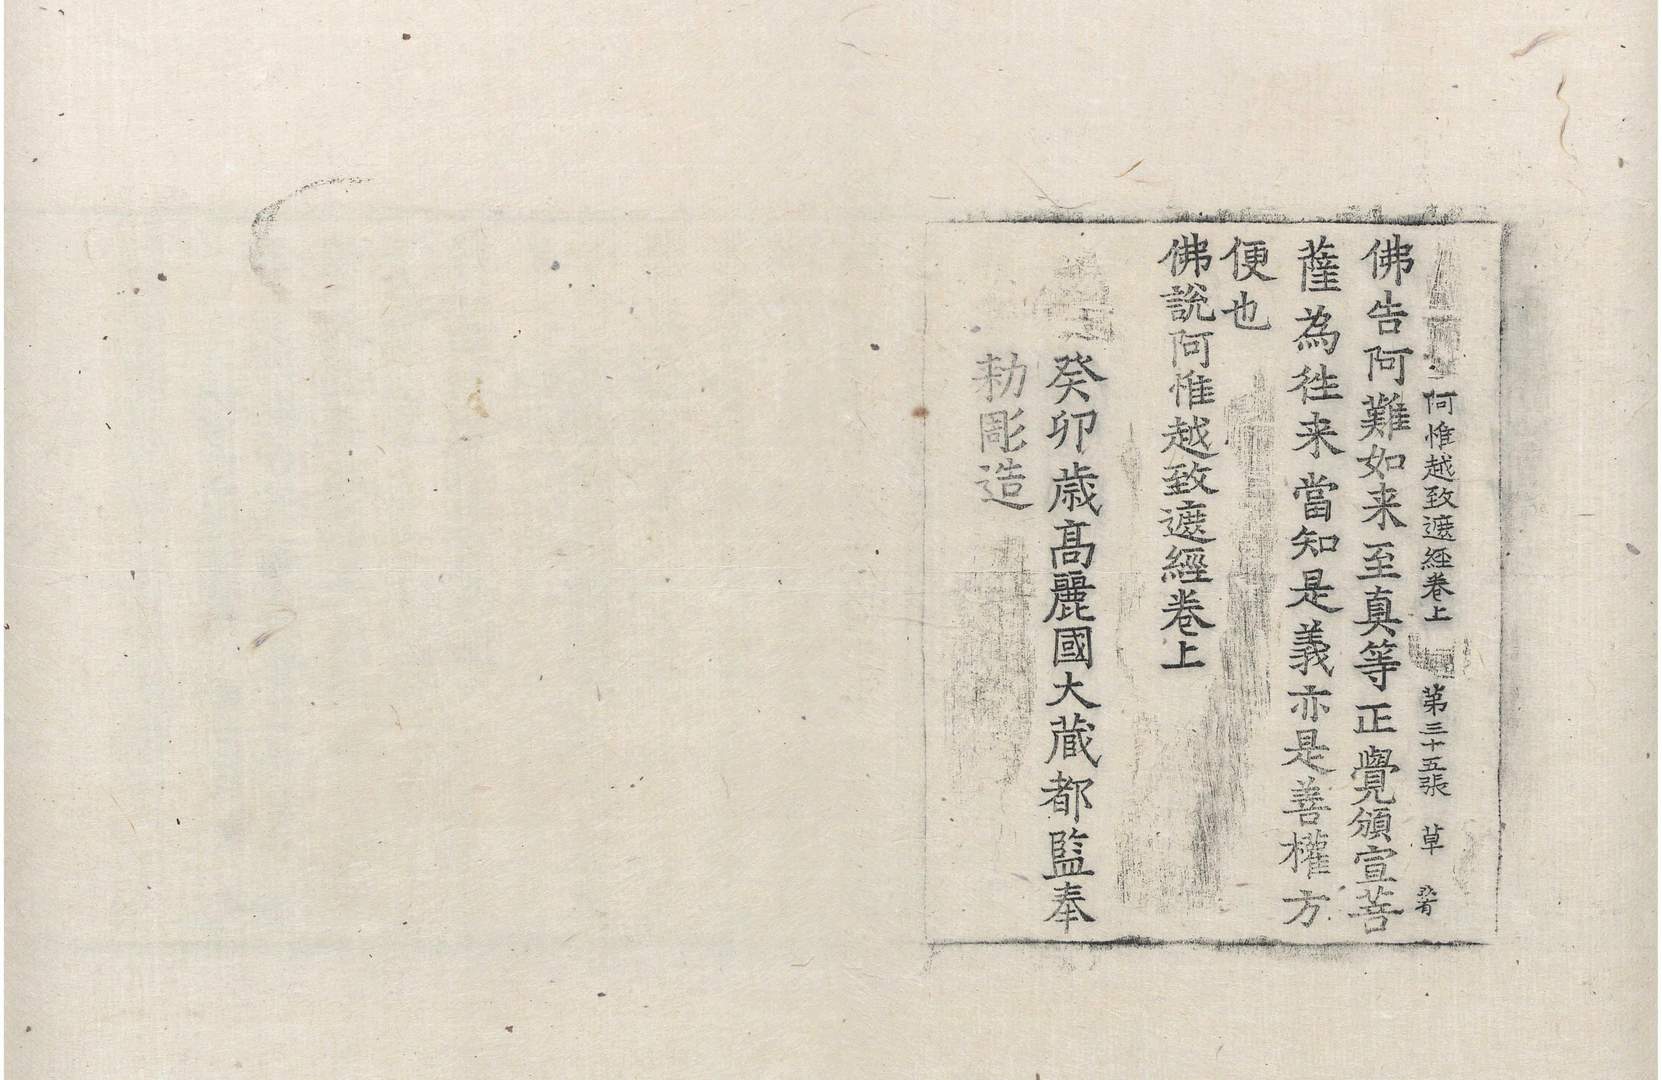 阿惟越致遮經卷上 第三十五張 草
佛告阿難如来至真等正覺頒宣菩
薩為徃来當知是義亦是善權方
便也
佛說阿惟越致遮經卷上
癸卯歳髙麗國大藏都監奉
勅彫造